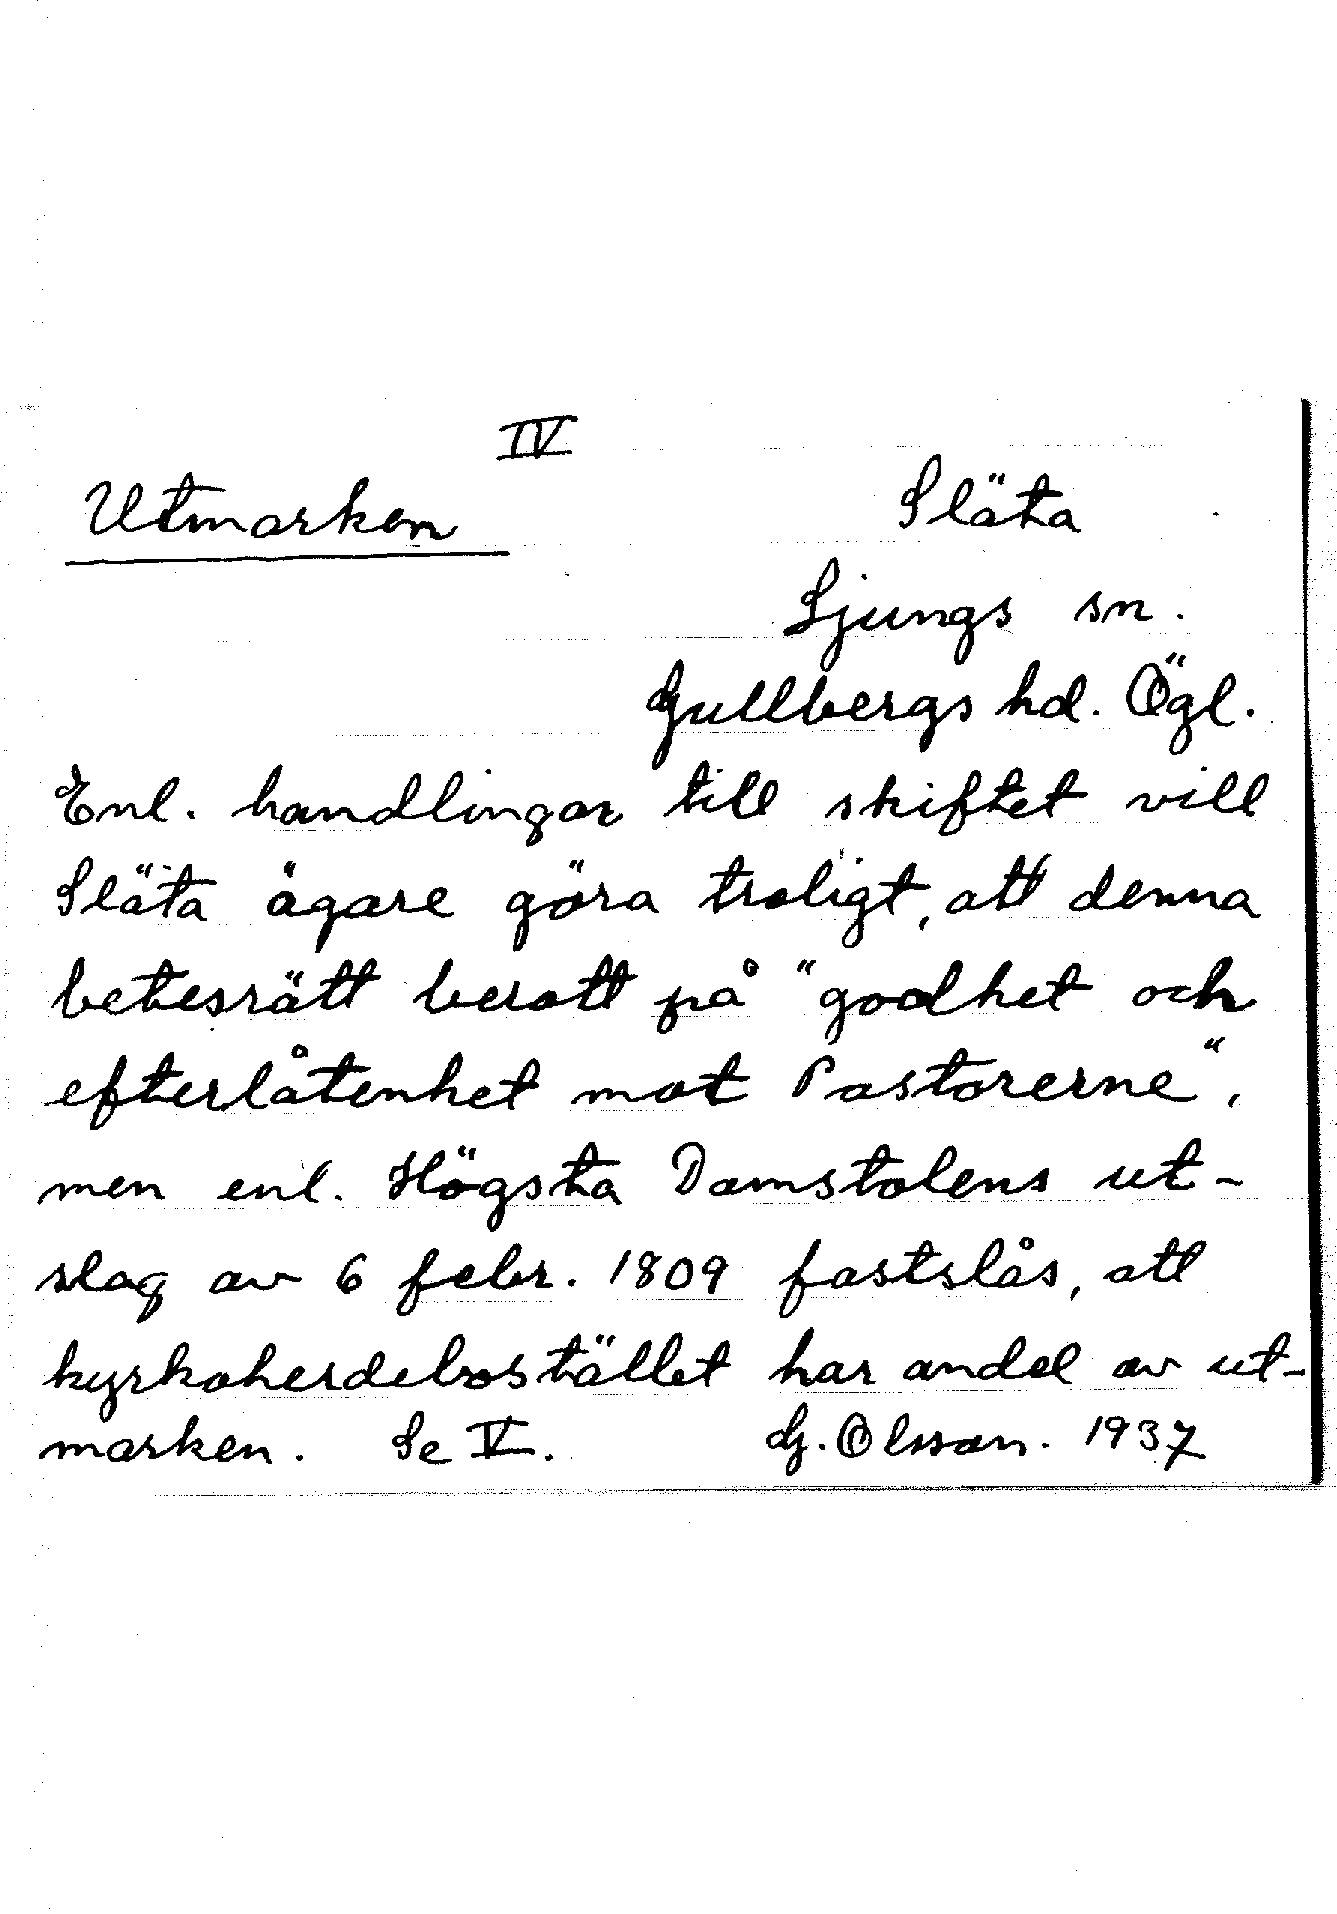 IV
Utmarken
Släta
Ljungs sn.
Gullbergs hd. Ögl.
Enl. handlingar till skiftet vill
Släta ägare göra troligt, att denna
betesrätt berott på "godhet och
efterlåtenhet mot Pastorerne",
men enl. Högsta Domstolens ut-
slag av 6 febr. 1809 fastslås, att
kyrkoherdebostället har andel av ut-
marken. Se V. G. Olsson. 1937